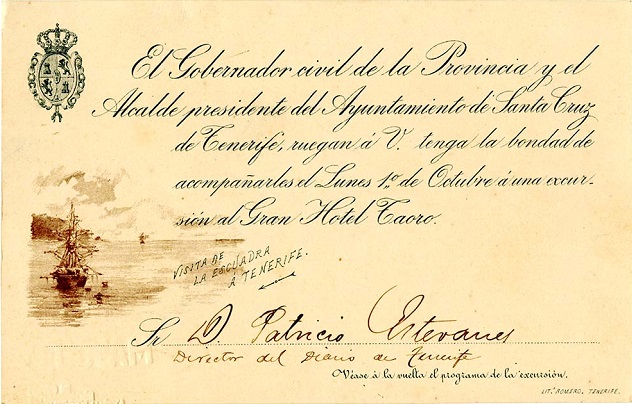 El Gobernador civil de la Provincia y el
Alcalde presidente del Ayuntamiento de Santa Cruz
de Tenerife, ruegan á V. tenga la bondad de
acompañarles el Lunes 1º de Octubre á una excur-
sión al Gran Hotel Taoro.
VISITA DE
LA ESCUADRA
Á TENERIFE.
Sr D. Patricio Estevanes
Director del Diario de Tenerife
Véase á la vuelta el programa de la excursión.
LIT. ROMERO, TENERIFE.